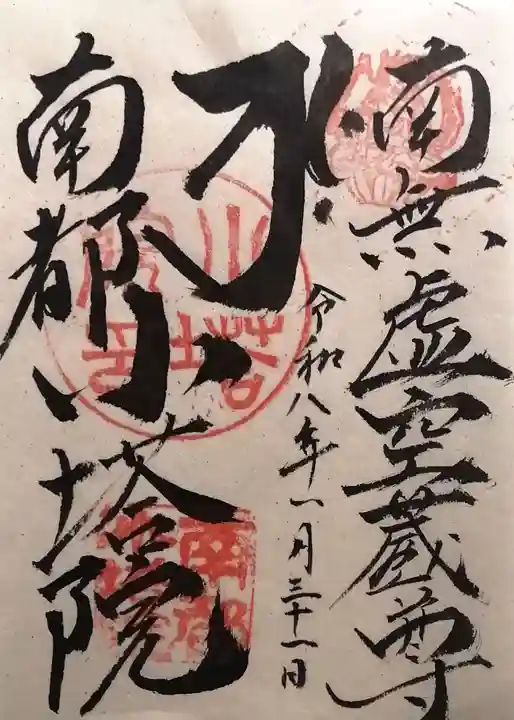 南無虚空蔵尊
令和八年一月三十一日
南都小塔院